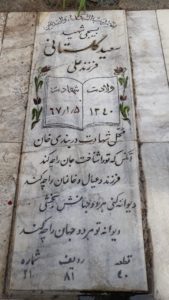 شهید
سعید گلستانی
فرزند علی
ولادت شهادت
۱۳۴۰ ۶۷/۱/۵
محل شهادت دربندی خان
آنکس که تو را شناخت جان را چه کند
فرزند و عیال و خانمان را چه کند
دیوانه کنی هر دو جهانش بخشی
دیوانه تو هر دو جهان را چه کند
قطعه ردیف شماره
۴۰ ۸۱ ۲۱